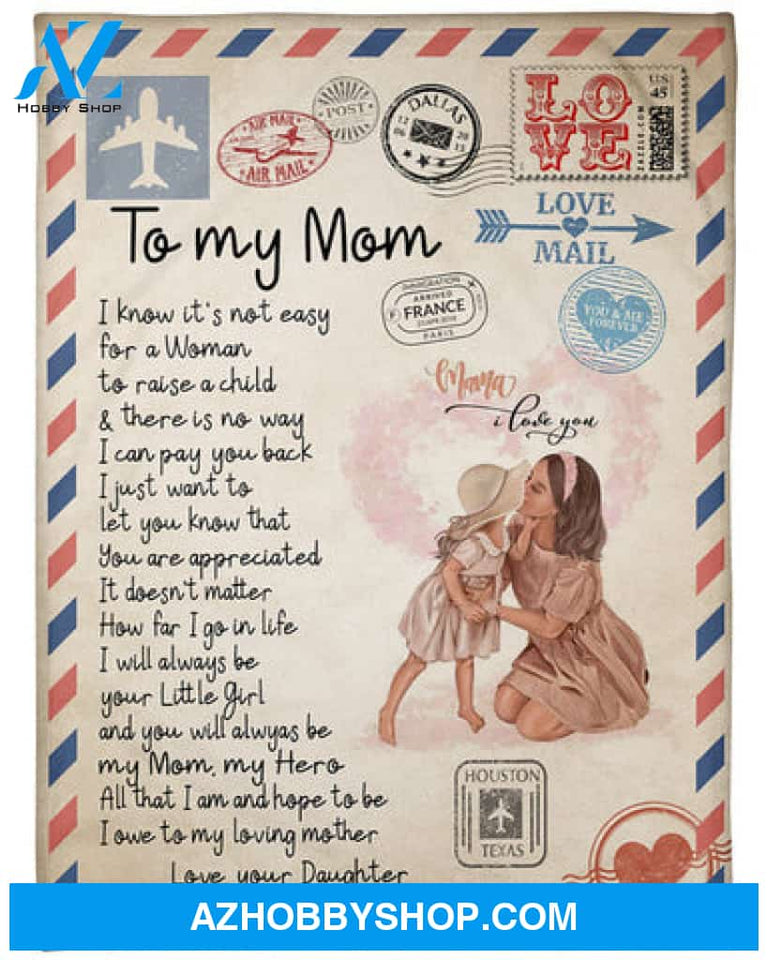 AZ
HOBBY SHOP
AIR MAIL
AIR MAIL
POST
DALLAS
LOVE
US
45
ZAZZLE.COM
To my Mom
LOVE
MAIL
IMMIGRATION
ARRIVED
FRANCE
PARIS
YOU & ME
FOREVER
I know it's not easy
for a Woman
to raise a child
& there is no way
I can pay you back
I just want to
let you know that
You are appreciated
It doesn't matter
How far I go in life
I will always be
your Little Girl
and you will alwyas be
my Mom, my Hero
All that I am and hope to be
I owe to my loving mother
Love, your Daughter
Mama
i love you
HOUSTON
TEXAS
AZHOBBYSHOP.COM